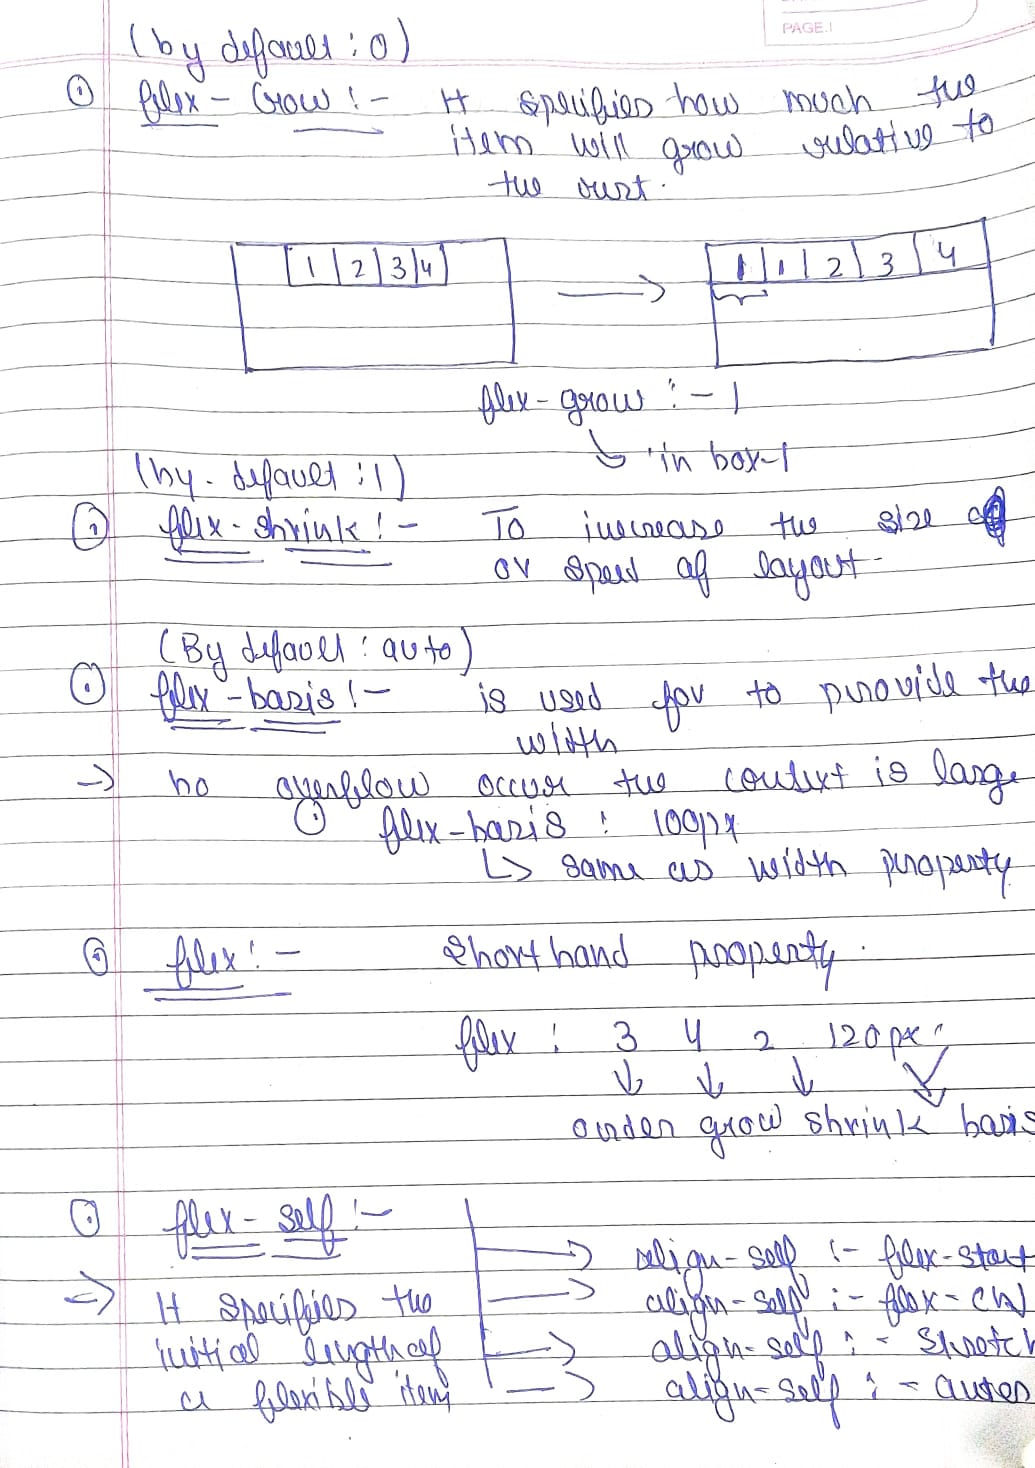 PAGE.
(by default : 0)
flex - Grow :- It specifies how much the
item will grow relative to
the rest.
1 2 3 4
1 2 3 4
flex - grow :- 1
in box-1
(by. default : 1)
flex - shrink :- To increase the size of
or speed of layout
(By default : auto)
flex - basis :- is used for to provide the
width
no overflow occur the context is large
flex - basis : 100px
same as width property
flex :- Shorthand property.
flex : 3 4 2 120px;
order grow shrink basis
flex - self :-
align - self :- flex - start
It specifies the
align - self :- flex - end
initial length of
align - self : - stretch
a flexible item
align - self : -